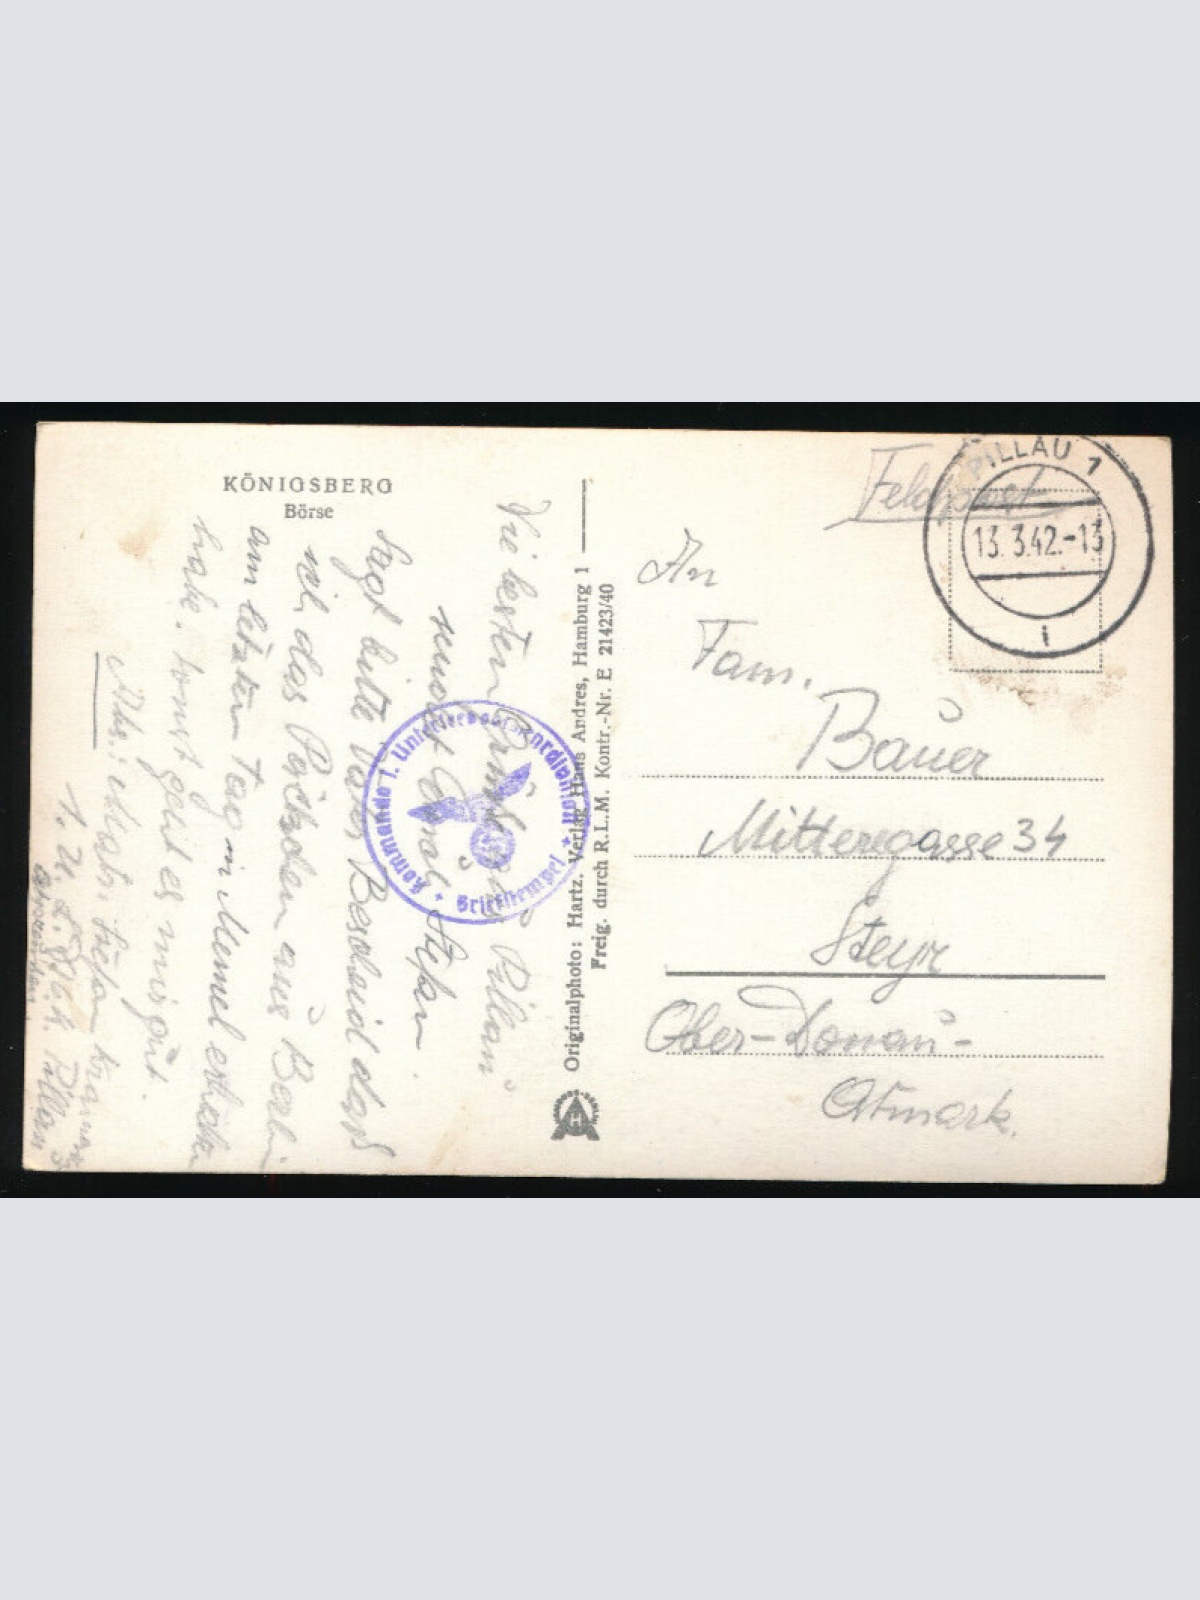 KÖNIGSBERG
Börse
Die besten Grüße aus Pillau
sendet Euch Stefan.
Sagt bitte Bescheid daß
ich das Päckchen aus Berlin
am letzten Tag in Memel erhalten
habe. Sonst geht es mir gut.
Abs:
1. U. L. D. Pillau
Ostpreußen
Kommando 1. Unterseebootslehrdivision
Briefstempel
Originalphoto: Hartz. Verlag Hans Andres, Hamburg 1
Freig. durch R.L.M. Kontr.-Nr. E 21423/40
Feldpost
PILLAU 1
13.3.42.-13
i
An
Fam.
Bauer
Mitteregasse 34
Steyr
Ober-Donau-
Ostmark.